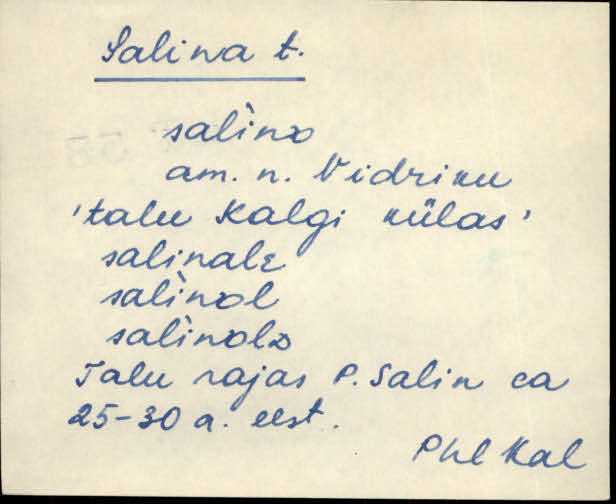 Salina t.
salìnɒ
am. n. Vidriku
'talu Kalgi külas'
salinale
salìnɒl
salìnɒlɒ
Talu rajas P. Salin ca
25-30 a. eest.
Phl Kal